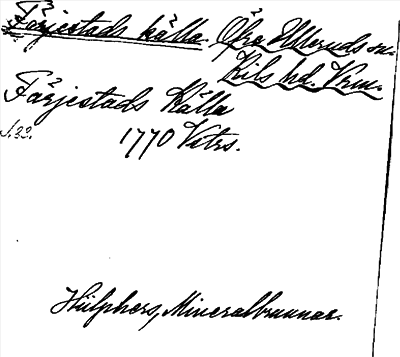 Färjestads källa. Övre Ulleruds sn.
Kils hd. Vrm.
Färjestads Källa
s. 33.
1770 Vttrs.
Hülphers, Mineralbrunnar.